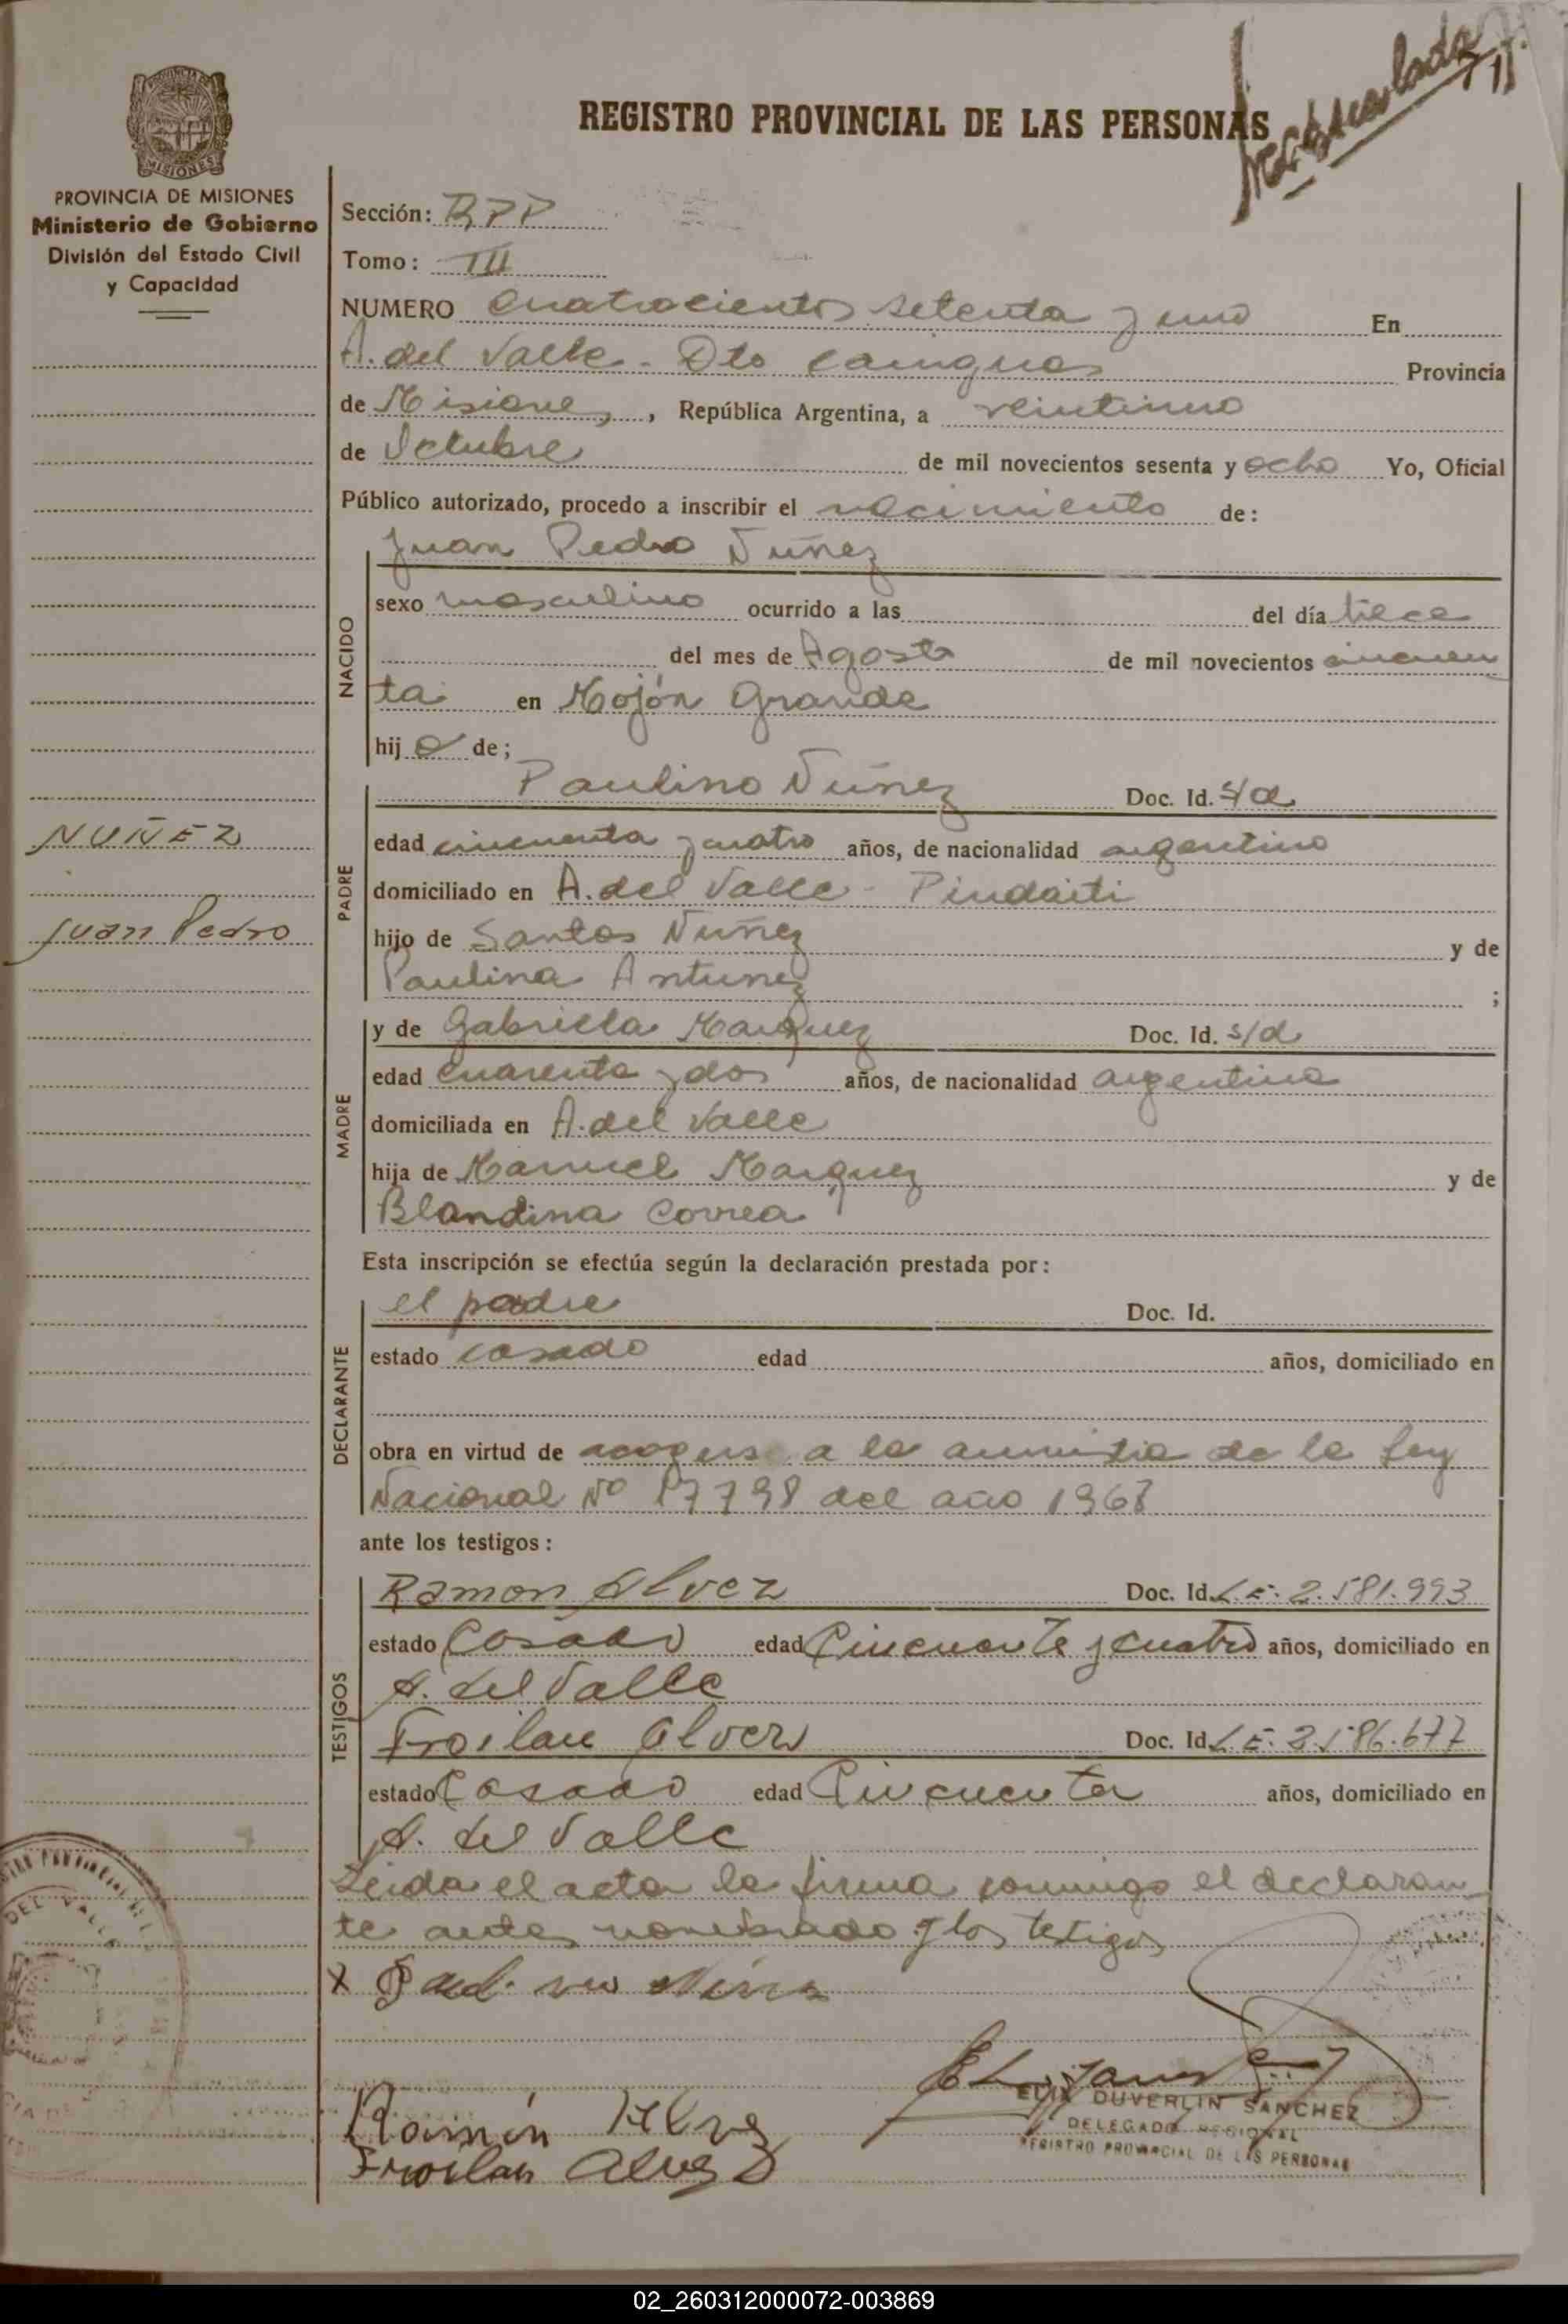 REGISTRO PROVINCIAL DE LAS PERSONAS
PROVINCIA DE MISIONES
Ministerio de Gobierno
División del Estado Civil
y Capacidad
NUÑEZ
Juan Pedro
Sección: RPP
Tomo: III
NUMERO cuatrocientos setenta y uno En
A. del Valle - Dto Cainguas Provincia
de Misiones, República Argentina, a veintiuno
de Octubre de mil novecientos sesenta y ocho Yo, Oficial
Público autorizado, procedo a inscribir el nacimiento de:
Juan Pedro Nuñez
NACIDO
sexo masculino ocurrido a las del día trece
del mes de Agosto de mil novecientos cincuen
ta en Mojón Grande
hijo de;
PADRE
Paulino Nuñez Doc. Id. s/d
edad cincuenta y cuatro años, de nacionalidad argentino
domiciliado en A. del Valle - Pindaiti
hijo de Santos Nuñez y de
Paulina Antunez ;
MADRE
y de Gabriela Marquez Doc. Id. s/d
edad cuarenta y dos años, de nacionalidad argentina
domiciliada en A. del Valle
hija de Manuel Marquez y de
Blandina Correa
Esta inscripción se efectúa según la declaración prestada por:
DECLARANTE
el padre Doc. Id.
estado casado edad años, domiciliado en
obra en virtud de acogerse a la amnistia de la Ley
Nacional Nº 17798 del año 1968
ante los testigos:
TESTIGOS
Ramon Alvez Doc. Id. L.E. 2.581.993
estado Casado edad Cincuenta y cuatro años, domiciliado en
A. del Valle
Froilan Alvez Doc. Id. L.E. 2.586.677
estado Casado edad Cincuenta años, domiciliado en
A. del Valle
Leida el acta la firma conmigo el declaran
te antes nombrado y los testigos
X
Ramón Alvez
Froilan Alvez
DUVERLIN SANCHEZ
DELEGADO REGIONAL
REGISTRO PROVINCIAL DE LAS PERSONAS
DEL VALLE
02_260312000072-003869